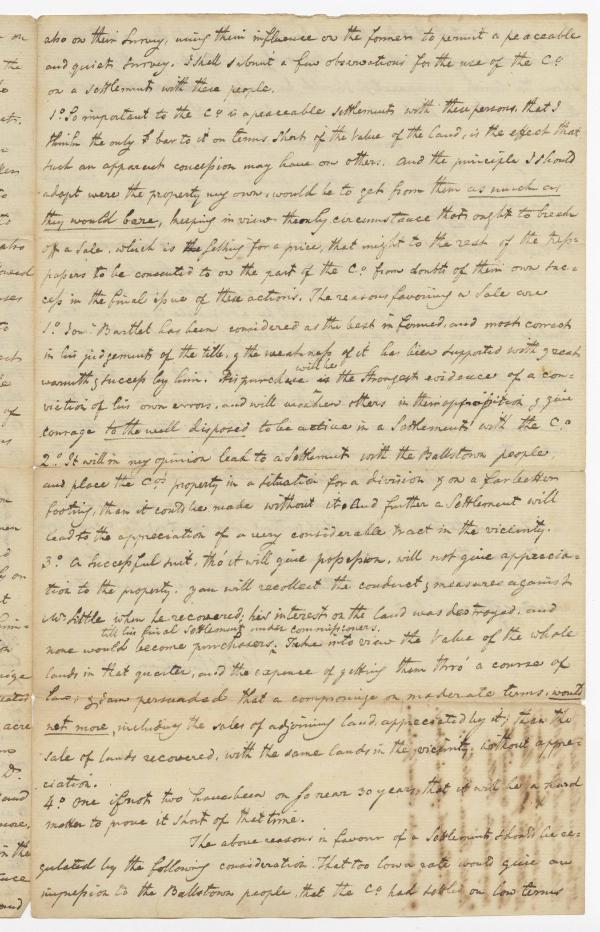 also on their Survey, using their influence on the former to permit a peaceable
and quiet Survey. I shall submit a few observations for the use of the Co.
on a Settlement with these people.
1o. So important to the Co. is a peaceable Settlement with these persons, that I
think the only bar to it on terms short of the value of the land, is the effect that
such an apparent concession may have on others. and the principle I should
adopt were the property my own, would be to get from them as much as
they would bare, keeping in view the only circumstance that ought to break
off a sale. which is the selling for a price, that might to the rest of the tress-
passers to be consented to on the part of the Co. from doubts of their own suc-
cess in the final issue of these actions. The reasons favoring a Sale are
1o. Jona Bartlet has been considered as the best informed, and most correct
in his judgement of the title, & the weakness of it has been supported with great
warmth & success by him. His purchase will be the Strongest evidence of a con-
viction of his own errors, and will weaken others in their opposition & give
courage to the well disposed to be active in a Settlement with the Co.
2o. It will in my opinion lead to a Settlement with the Ballstown people,
and place the Cos. property in a situation for a division & on a far better
footing, than it could be made without it. And further a Settlement will
lead to the appreciation of a very considerable tract in the vicinity.
3o. A Successful suit, tho' it will give possession, will not give apprecia-
tion to the property. you will recollect the conduct & measures against
Mr. Little when he recovered; his interest on the land was destroyed, and
till his final Settlement under commissioners.
none would become purchasers. Take into view the Value of the whole
lands in that quarter, and the expence of getting them thro' a course of
Law, & I am persuaded that a compromise on moderate terms, would
net more, including the sales of adjoining land appreciated by it; than the
sale of lands recovered, with the same lands in the vicinity, without appre-
ciation.
4o. One if not two have been on so near 30 years, that it will be a hard
matter to prove it short of that time.
The above reasons in favour of a Settlement should be re-
gulated by the following consideration. That too low a rate would give an
impression to the Ballstown people, that the Co. had settled on low terms